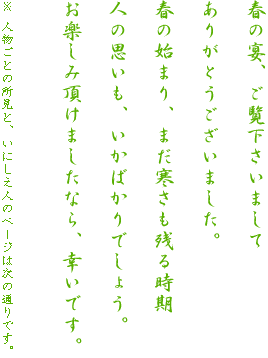 春の宴、ご覧下さいまして
ありがとうございました。
春の始まり、まだ寒さも残る時期
人の思いも、いかばかりでしょう。
お楽しみ頂けましたなら、幸いです。
※ 人物ごとの所見と、いにしえ人のページは次の通りです。